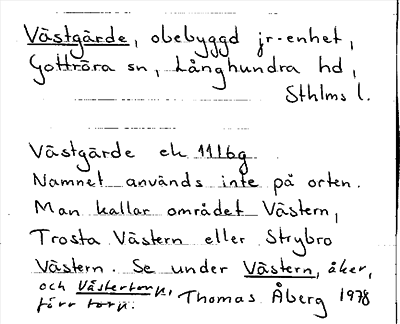 Västgärde, obebyggd jr-enhet,
Gottröra sn, Långhundra hd,
Sthlms l.
Västgärde ek 1116g
Namnet används inte på orten.
Man kallar området Västern,
Trosta Västern eller Strybro
Västern. Se under Västern, åker,
och Västertorp,
förr torp. Thomas Åberg 1978